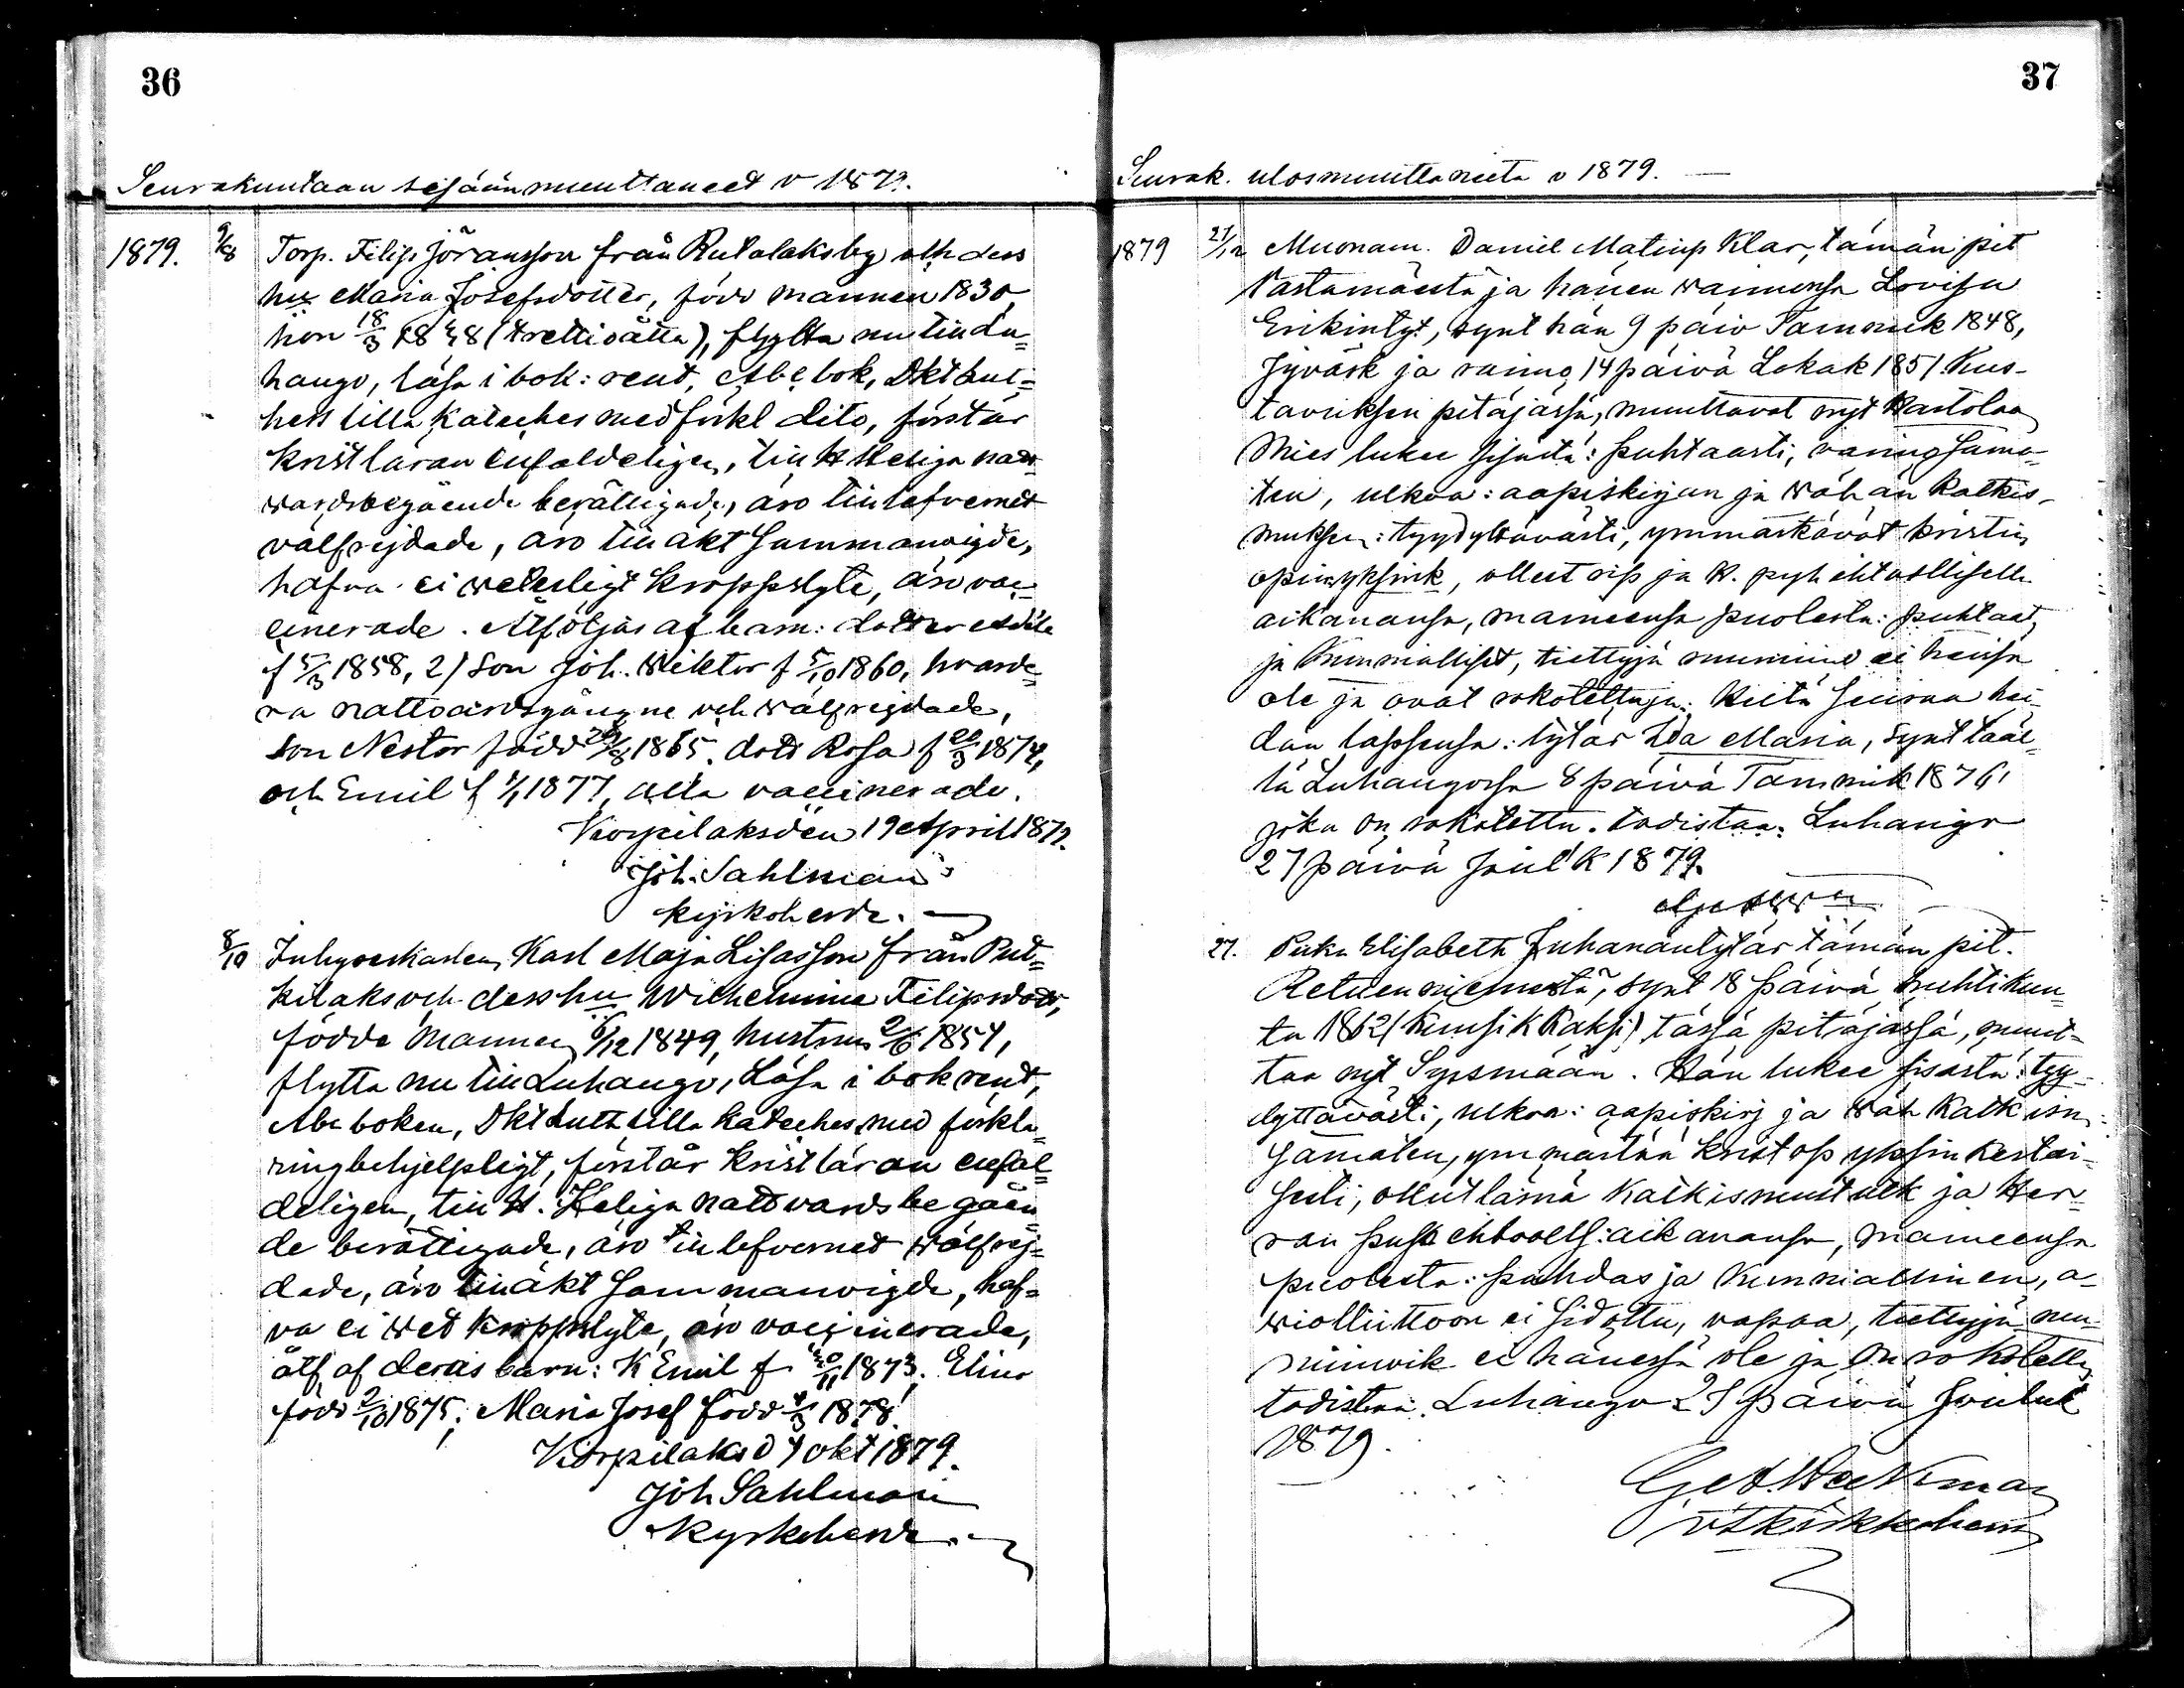 36
Seurakuntaan sisäänmuuttaneet v 1879.
1879. 9/8 Torp. Filip Jöransson från Rutalaks by och dess
hu Maria Josefsdotter, född mannen 1830,
hon 18/3 1838 (trettioåtta), flytta nu till Lu=
hango, läsa i bok: rent, Abc bok, Dkt Lut=
hers lilla Kateches med förkl dito, förstår
krist läran enfaldeligen, till H Heliga natt
vardsbegående berättigade, äro till lefvernet
välfrejdade, äro till äkt Sammanvigde,
hafva ei veterligt kroppslyte, äro vac=
cinerade. Åtföljas af barn: dotter
f 5/3 1858, 2) Son Joh. Wiktor f 5/10 1860, hvarde=
ra nattvardsgångne och välfrejdade,
Son Nestor född 29/8 1865. dott Rosa f 20/3 1874,
och Emil f 1/1 1877, alla vaccinerade.
Korpilaks den 19 April 1879.
Joh. Sahlman
kyrkoherde.
8/10 Inhyseskarlen Karl Maja Lisasson från Put=
kilaks och dess hu Wilhelmina Filipsdott,
födde Mannen 6/12 1849, hustrun 2/6 1854,
flytta nu till Luhango, Läsa i bok rent,
Abc boken, Dkt Luth lilla kateches med förkla=
ring behjelpligt, förstår krist läran enfal=
deligen, till H. Heliga nattvards begåen=
de berättigade, äro till lefvernet välfrej=
dade, äro till äkt Sammanvigde, haf=
va ei vet kroppslyte, äro vaccinerade,
åtf af deras barn: K Emil f 20/11 1873. Elina
född 2/10 1875, Maria Josef född 4/3 1878.
Korpilaks d 4 okt 1879.
Joh Sahlman
Kyrkoherde.
37
Seurak. ulosmuuttaneita v 1879.
1879 21/12 Muonam. Daniel Matinp Klar, tämän pit
Vastamäestä ja hänen vaimonsa Lovisa
Erikintyt, synt hän 9 päiv Tammik 1848,
Jyväsk ja vaimo 14 päivä Lokak 1851 Kus-
taviksen pitäjässä, muuttavat nyt Hartolaan
Mies lukee sisältä: puhtaasti, vaimo sama=
ten, ulkoa: aapiskirjan ja vähän katkis-
muksen: tyydyttävästi, ymmärtävät kristin
opin yksink, olleet rip ja H. pyh ehtoollisella
aikanansa, maineensa puolesta: puhtaat
ja kunnialliset, tiettyjä ruumiinv ei heissä
ole ja ovat rokotettuja. Heitä seuraa hei=
dän lapsensa: tytär Ida Maria, synt tääl=
lä Luhangossa 8 päivä Tammik 1876,
joka on rokotettu. todistaa. Luhango
27 päivä Joul K 1879.
27. Piika Elisabeth Juhanantytär tämän pit.
Retuenniemestä, synt 18 päivä huhtikuu=
ta 1862 (kuusikkaksi) tässä pitäjässä, muut=
taa nyt Sysmään. Hän lukee sisästä: tyy=
dyttävästi, ulkoa: aapiskirj ja väh Katkism
samaten, ymmärtää krist op yksinkertai=
sesti, ollut läsnä Katkismust ulk ja Her=
ran pyh ehtooll: aikanansa, maineensa
puolesta: puhdas ja kunniallinen, a-
violiittoon ei sidottu, vapaa, tiettyjä ruu=
miinvik ei hänessä ole ja on rokotettu
todistaa. Luhango 27 päivä Jouluk
1879.